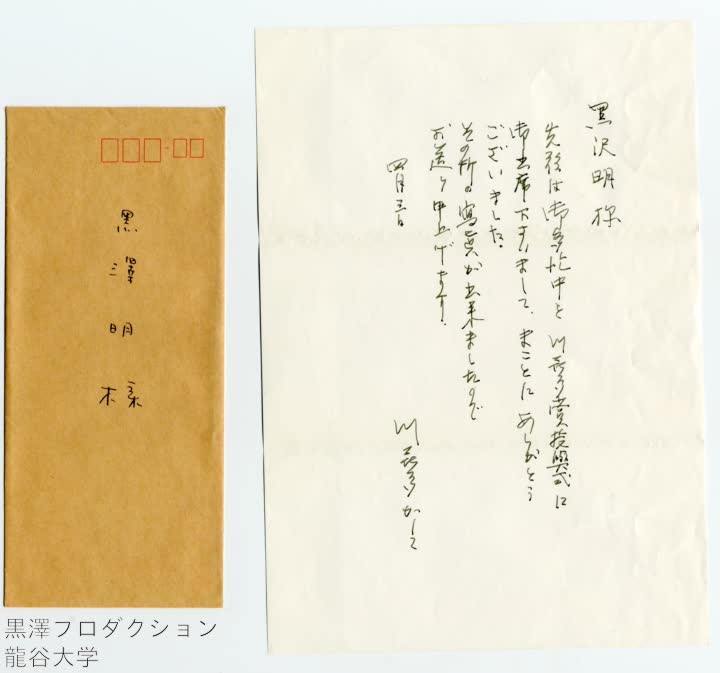 黒澤明様
黒沢明様
先般は御多忙中を川喜多賞授與式に
御出席下さいまして、まことにありがとう
ございました。
その折の寫真が出来ましたので
お送り申上げます。
四月三日
川喜多かしこ
黒澤フロダクション
龍谷大学